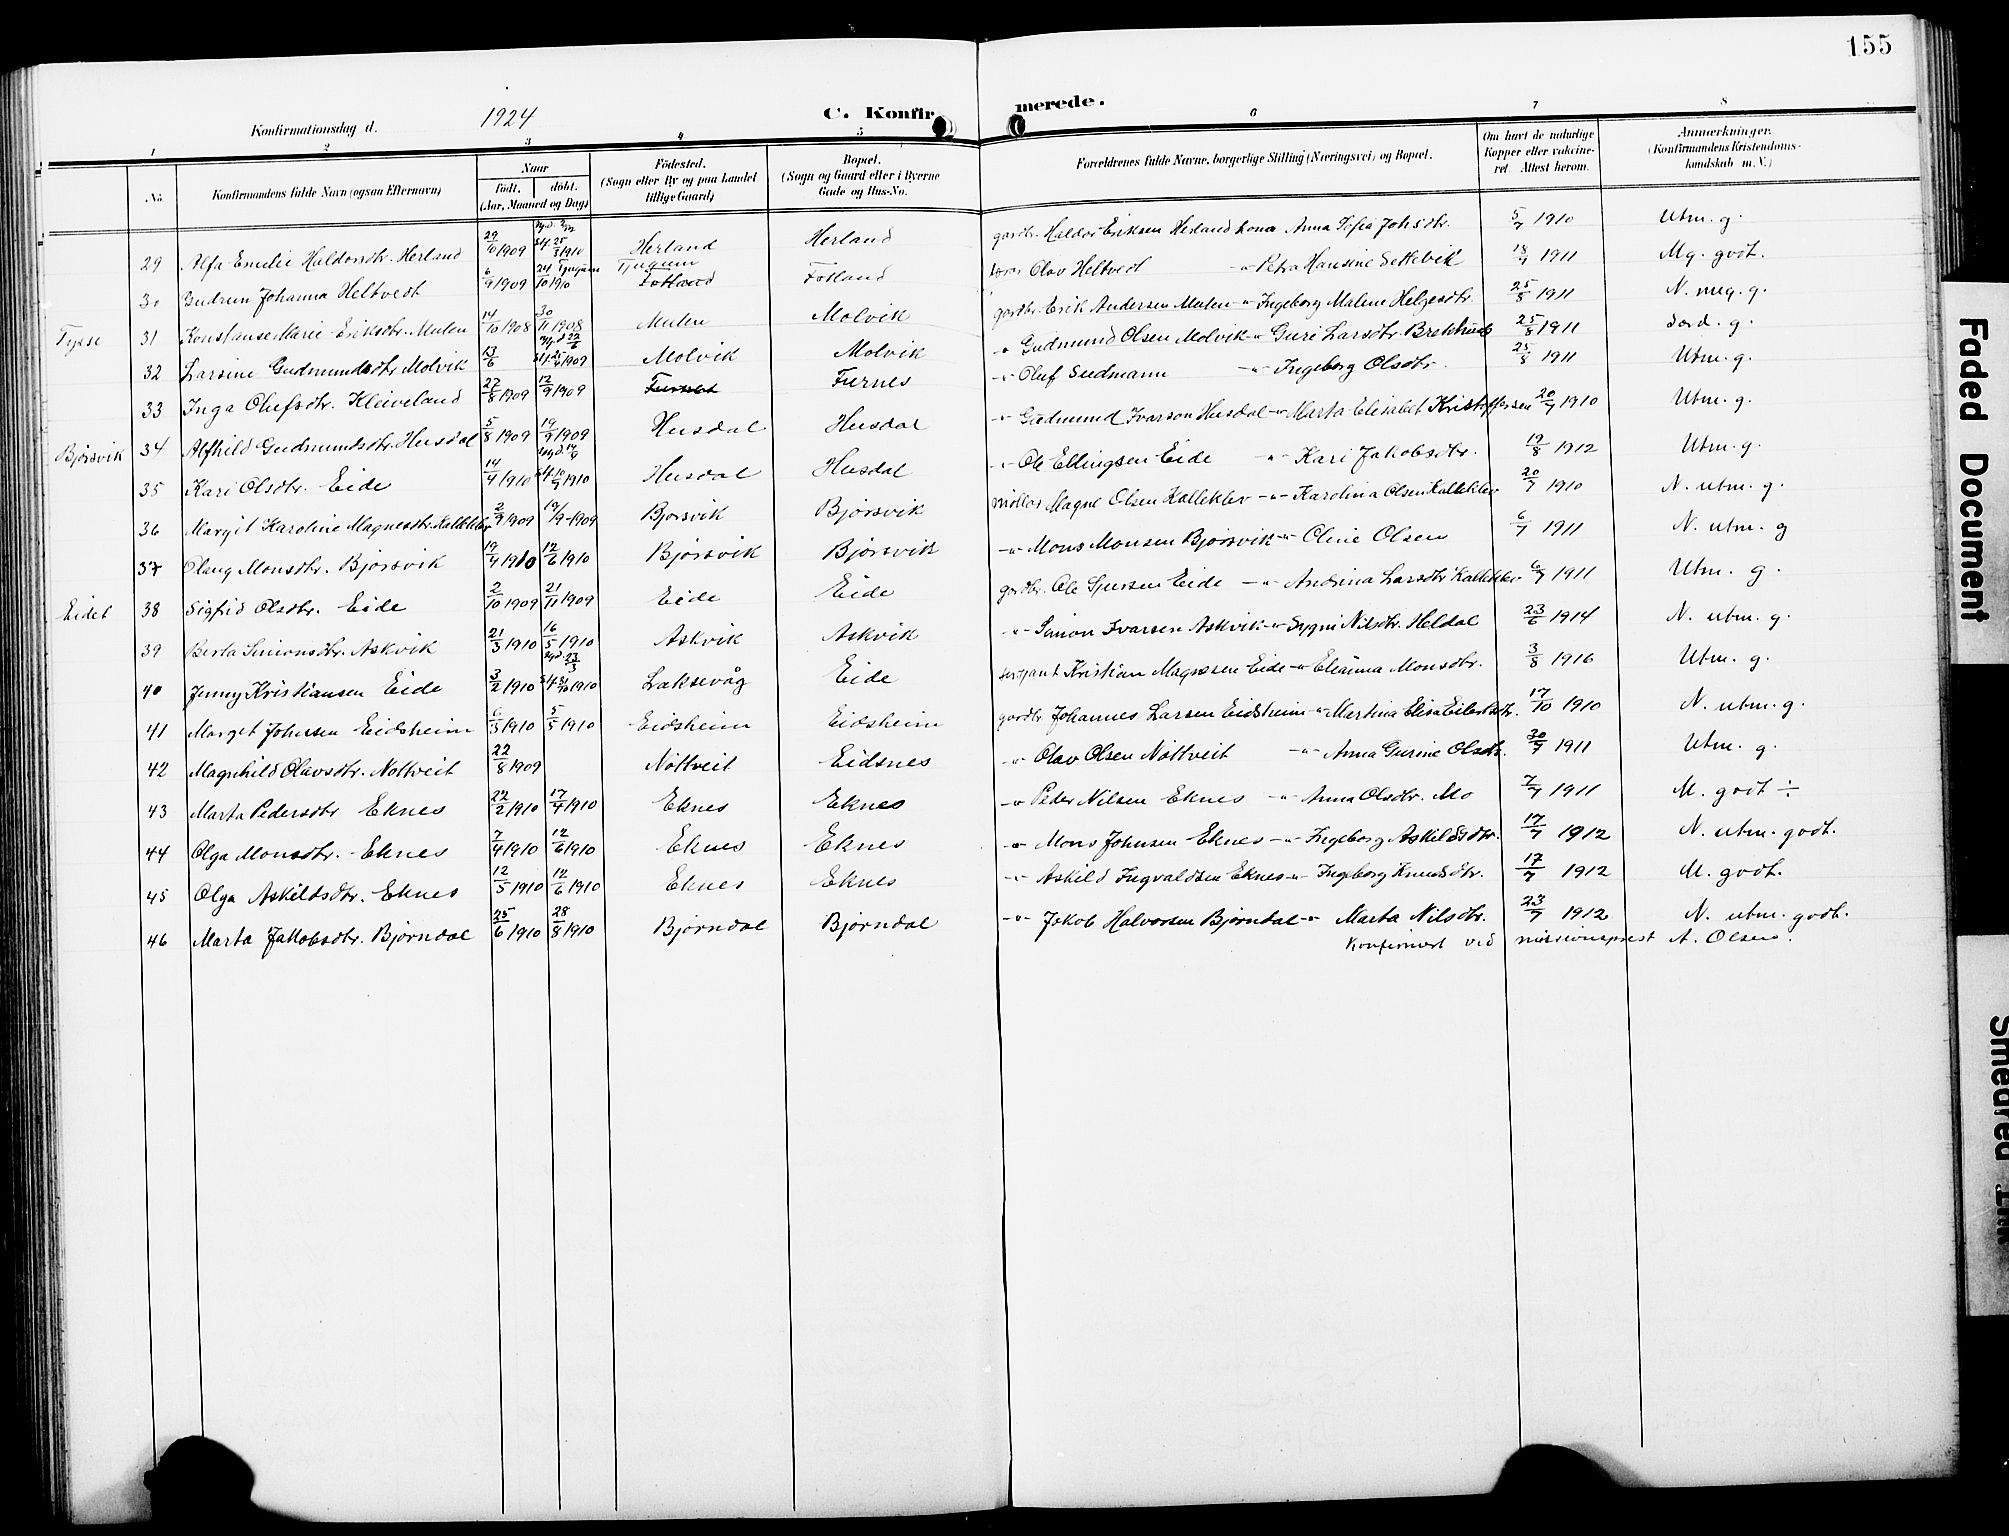 155
1924
C. Konfirmerede.
Konfirmationsdag d.
1 2 3 4 5 6 7 8
No. Konfirmandens fulde Navn (ogsaa Efternavn) Naar født. døbt. (Aar, Maaned og Dag) Fødested. (Sogn eller By og paa Landet tillige Gaard) Bopæl. (Sogn og Gaard eller i Byerne Gade og Hus-No. Forældrenes fulde Navne, borgerlige Stilling (Næringsvei) og Bopæl. Om havt de naturlige Kopper eller vaccineret. Attest herom. Anmærkninger. (Konfirmandens Kristendomskundskab m. V.)
29 Alfa Emelie Haldorsdtr. Herland 29/10 1909 25/3 1910 Herland Herland gardbr. Haldor Eriksen Herland kona Anna Sofia Johsdtr. 5/7 1910 Utm. g.
30 Gudrun Johanna Heltvedt 6/9 1909 24/10 1910 Tjugum Fotland Fotland Olav Heltvedt -"- Petra Hansine Settevik 18/7 1911 Mg. godt.
Tysse 31 Konstanse Marie Eriksdtr. Mulen 14/10 1908 30/11 1908 Mulen Molvik gardbr. Erik Andersen Mulen -"- Ingeborg Malene Helgesdtr. 25/8 1911 N. meg. g.
32 Larsine Gudmundsdtr. Molvik 13/6 1909 Molvik Molvik -"- Gudmund Olsen Molvik -"- Guri Larsdtr. Brekhus 25/8 1911 Särd. g.
33 Inga Olufsdtr. Kleiveland 27/8 1909 12/9 1909 Furnes Furnes -"- Oluf Sudmann -"- Ingeborg Olsdtr. 25/8 1911 Utm. g.
Bjørsvik 34 Alfhild Gudmundsdtr. Husdal 5/8 1909 19/9 1909 Husdal Husdal -"- Gudmund Ivarson Husdal -"- Marta Elisabet Kristoffersen 20/7 1910 Utm. g.
35 Kari Olsdtr. Eide 14/4 1910 10/7 1910 Husdal Husdal -"- Ole Ellingsen Eide -"- Kari Jakobsdtr. 19/8 1912 Utm. g.
36 Margit Karoline Magnesdtr. Kalleklev 2/9 1909 19/9 1909 Bjørsvik Bjørsvik møllar Magne Olsen Kalleklev -"- Karolina Olsen Kalleklev 20/7 1910 N. utm. g.
37 Olaug Monsdtr. Bjørsvik 19/4 1910 12/6 1910 Bjørsvik Bjørsvik -"- Mons Monsen Bjørsvik -"- Oline Olsen 6/7 1911 N. utm. g
Eidet 38 Sigfrid Olsdtr. Eide 2/10 1909 21/11 1909 Eide Eide gardbr. Ole Sjursen Eide -"- Andrina Larsdtr. Kalleklev 6/7 1911 Utm. g.
39 Berta Simonsdtr. Askvik 21/3 1910 16/5 1910 Askvik Askvik -"- Simon Ivarsen Askvik -"- Sygni Nilsdtr. Heldal 23/6 1914 N. utm. g.
40 Jenny Kristiansen Eide 3/2 1910 Laksevåg Eide sersjant Kristian Magnesen Eide -"- Elianna Monsdtr. 3/8 1916 Utm. g.
41 Marget Johnsen Eidsheim 6/3 1910 5/5 1910 Eidsheim Eidsheim gardbr. Johannes Larsen Eidsheim -"- Martina Elisa Eilertsdtr. 17/10 1910 N. utm. g.
42 Magnhild Olavsdtr. Nøttveit 22/8 1909 Nøttveit Eidsnes -"- Olav Olsen Nøttveit -"- Anna Gurine Olsdtr. 30/9 1911 Utm. g.
43 Marta Pedersdtr Eknes 22/2 1910 17/4 1910 Eknes Eknes -"- Peder Nilsen Eknes -"- Anna Olsdtr. Mo 7/7 1911 M. godt ÷
44 Olga Monsdtr. Eknes 7/4 1910 12/6 1910 Eknes Eknes -"- Mons Johnsen Eknes -"- Ingeborg Askildsdtr. 17/7 1912 N. utm. godt.
45 Olga Askildsdtr. Eknes 12/5 1910 12/6 1910 Eknes Eknes -"- Askild Ingvaldsen Eknes -"- Ingeborg Knudsdtr. 17/7 1912 M. godt.
46 Marta Jakobsdtr. Bjørndal 25/6 1910 28/8 1910 Bjørndal Bjørndal -"- Jakob Halvorsen Bjørndal -"- Marta Nilsdtr. 23/7 1912 N. utm. godt.
Konfirmert ved misionsprest A. Olsen.
Faded Document
Smeared Ink